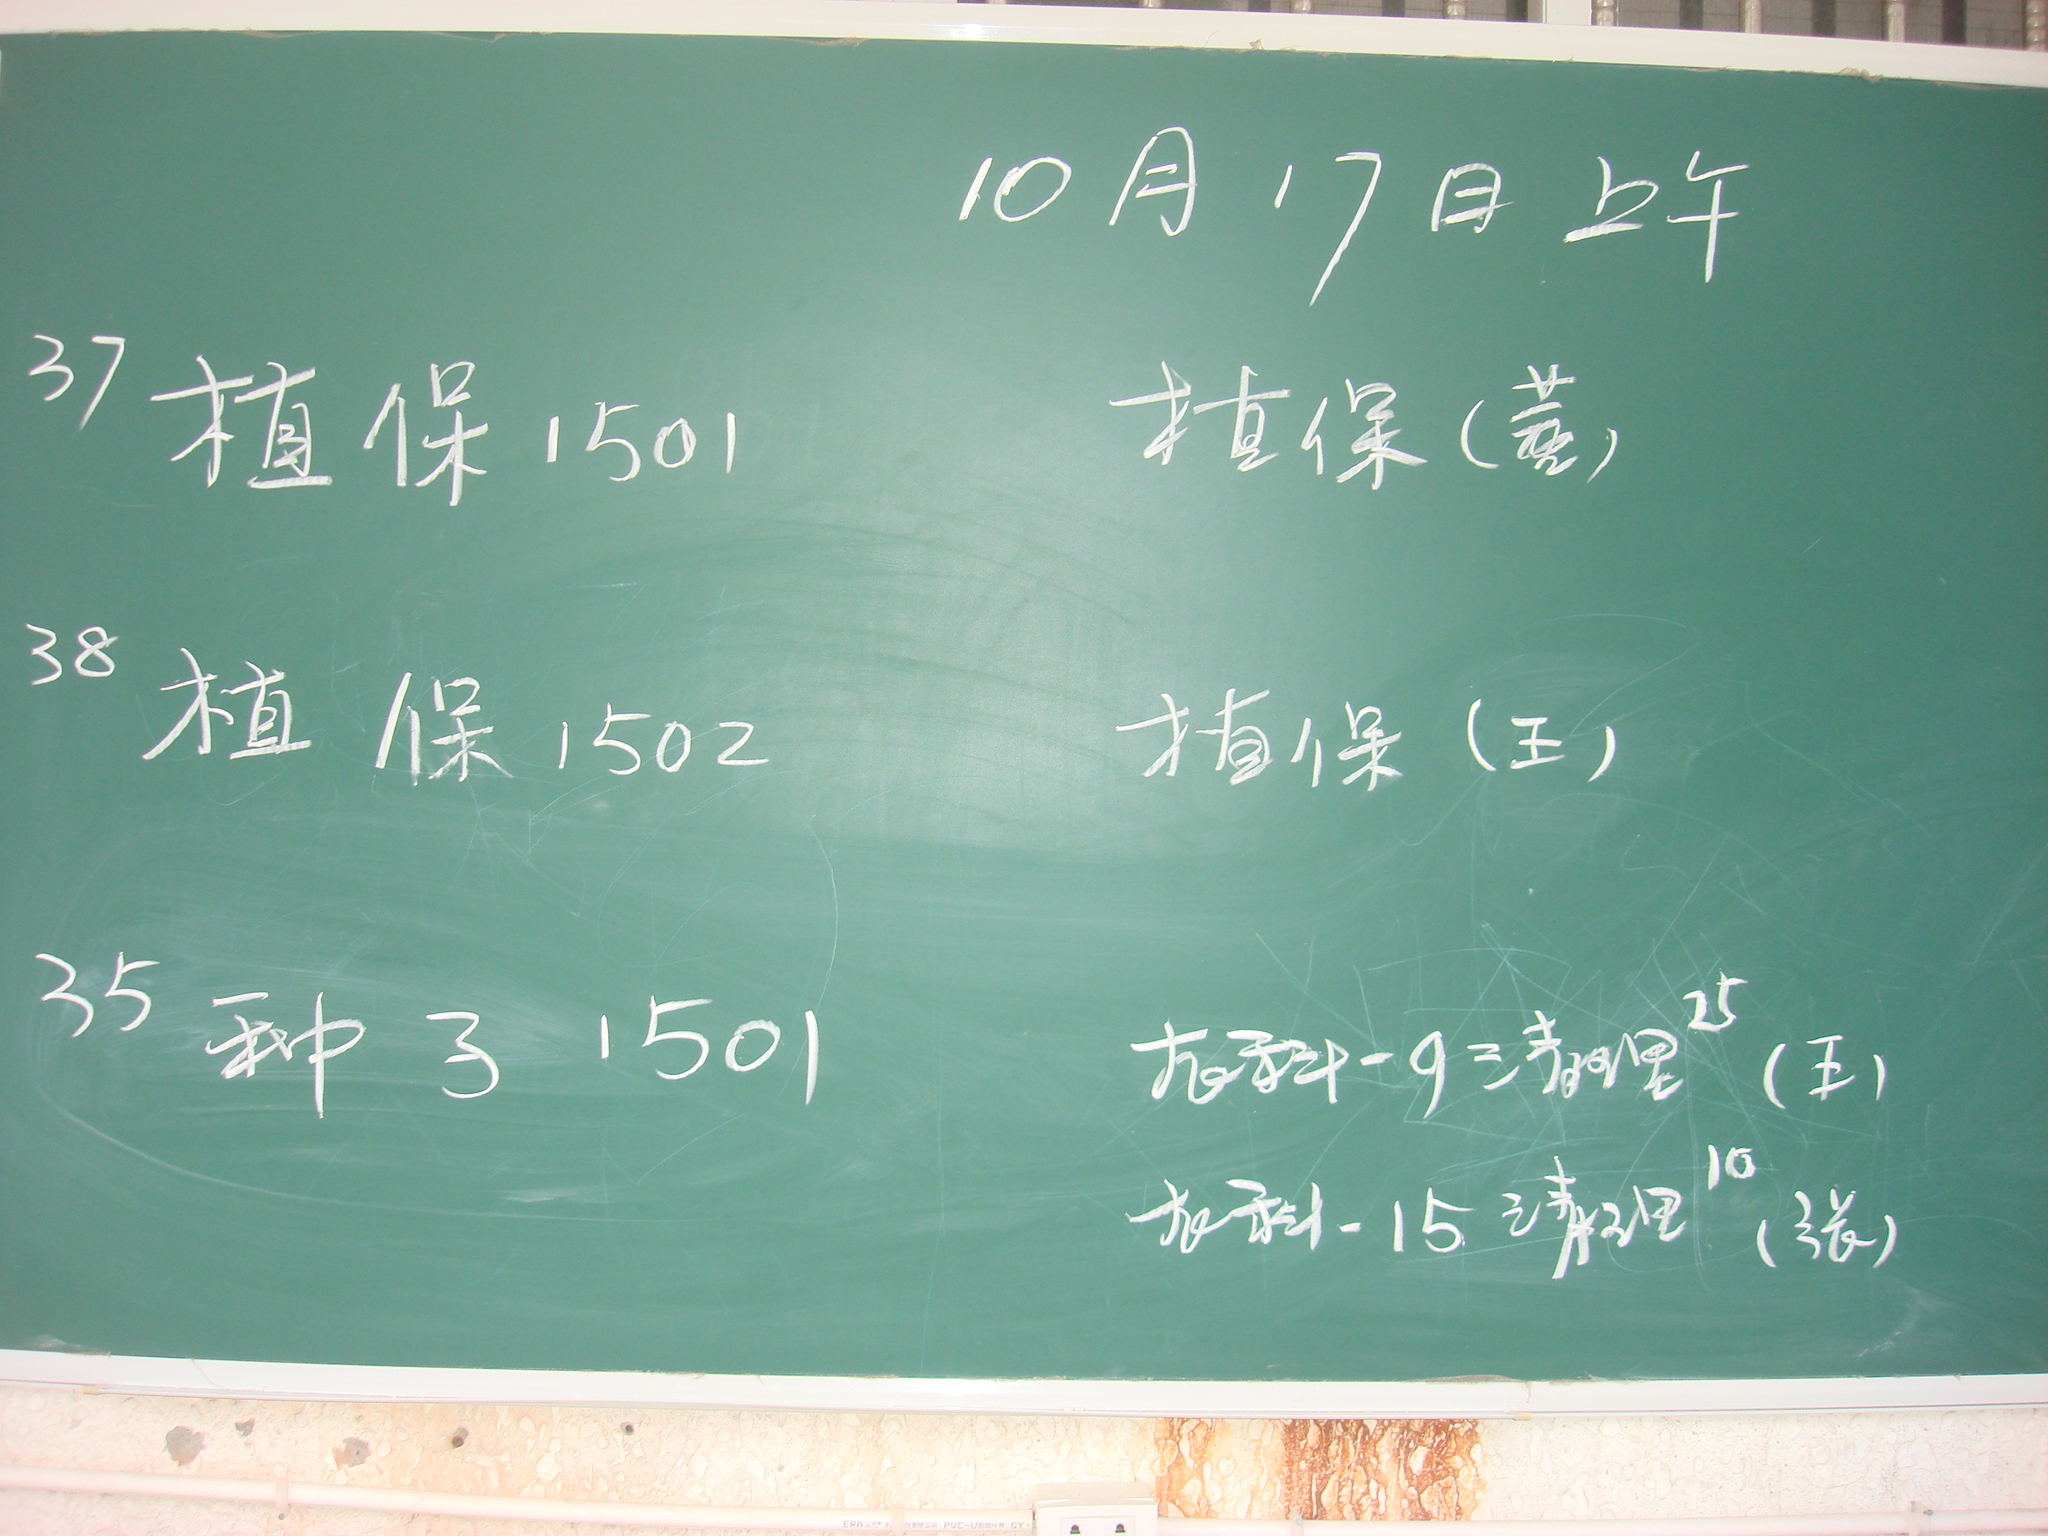 10月17日上午
37 植保1501 植保(燕)
38 植保1502 植保(王)
35 种子1501 农科-9 清理 25 (王)
农科-15 清理 10 (张)
PVC-U